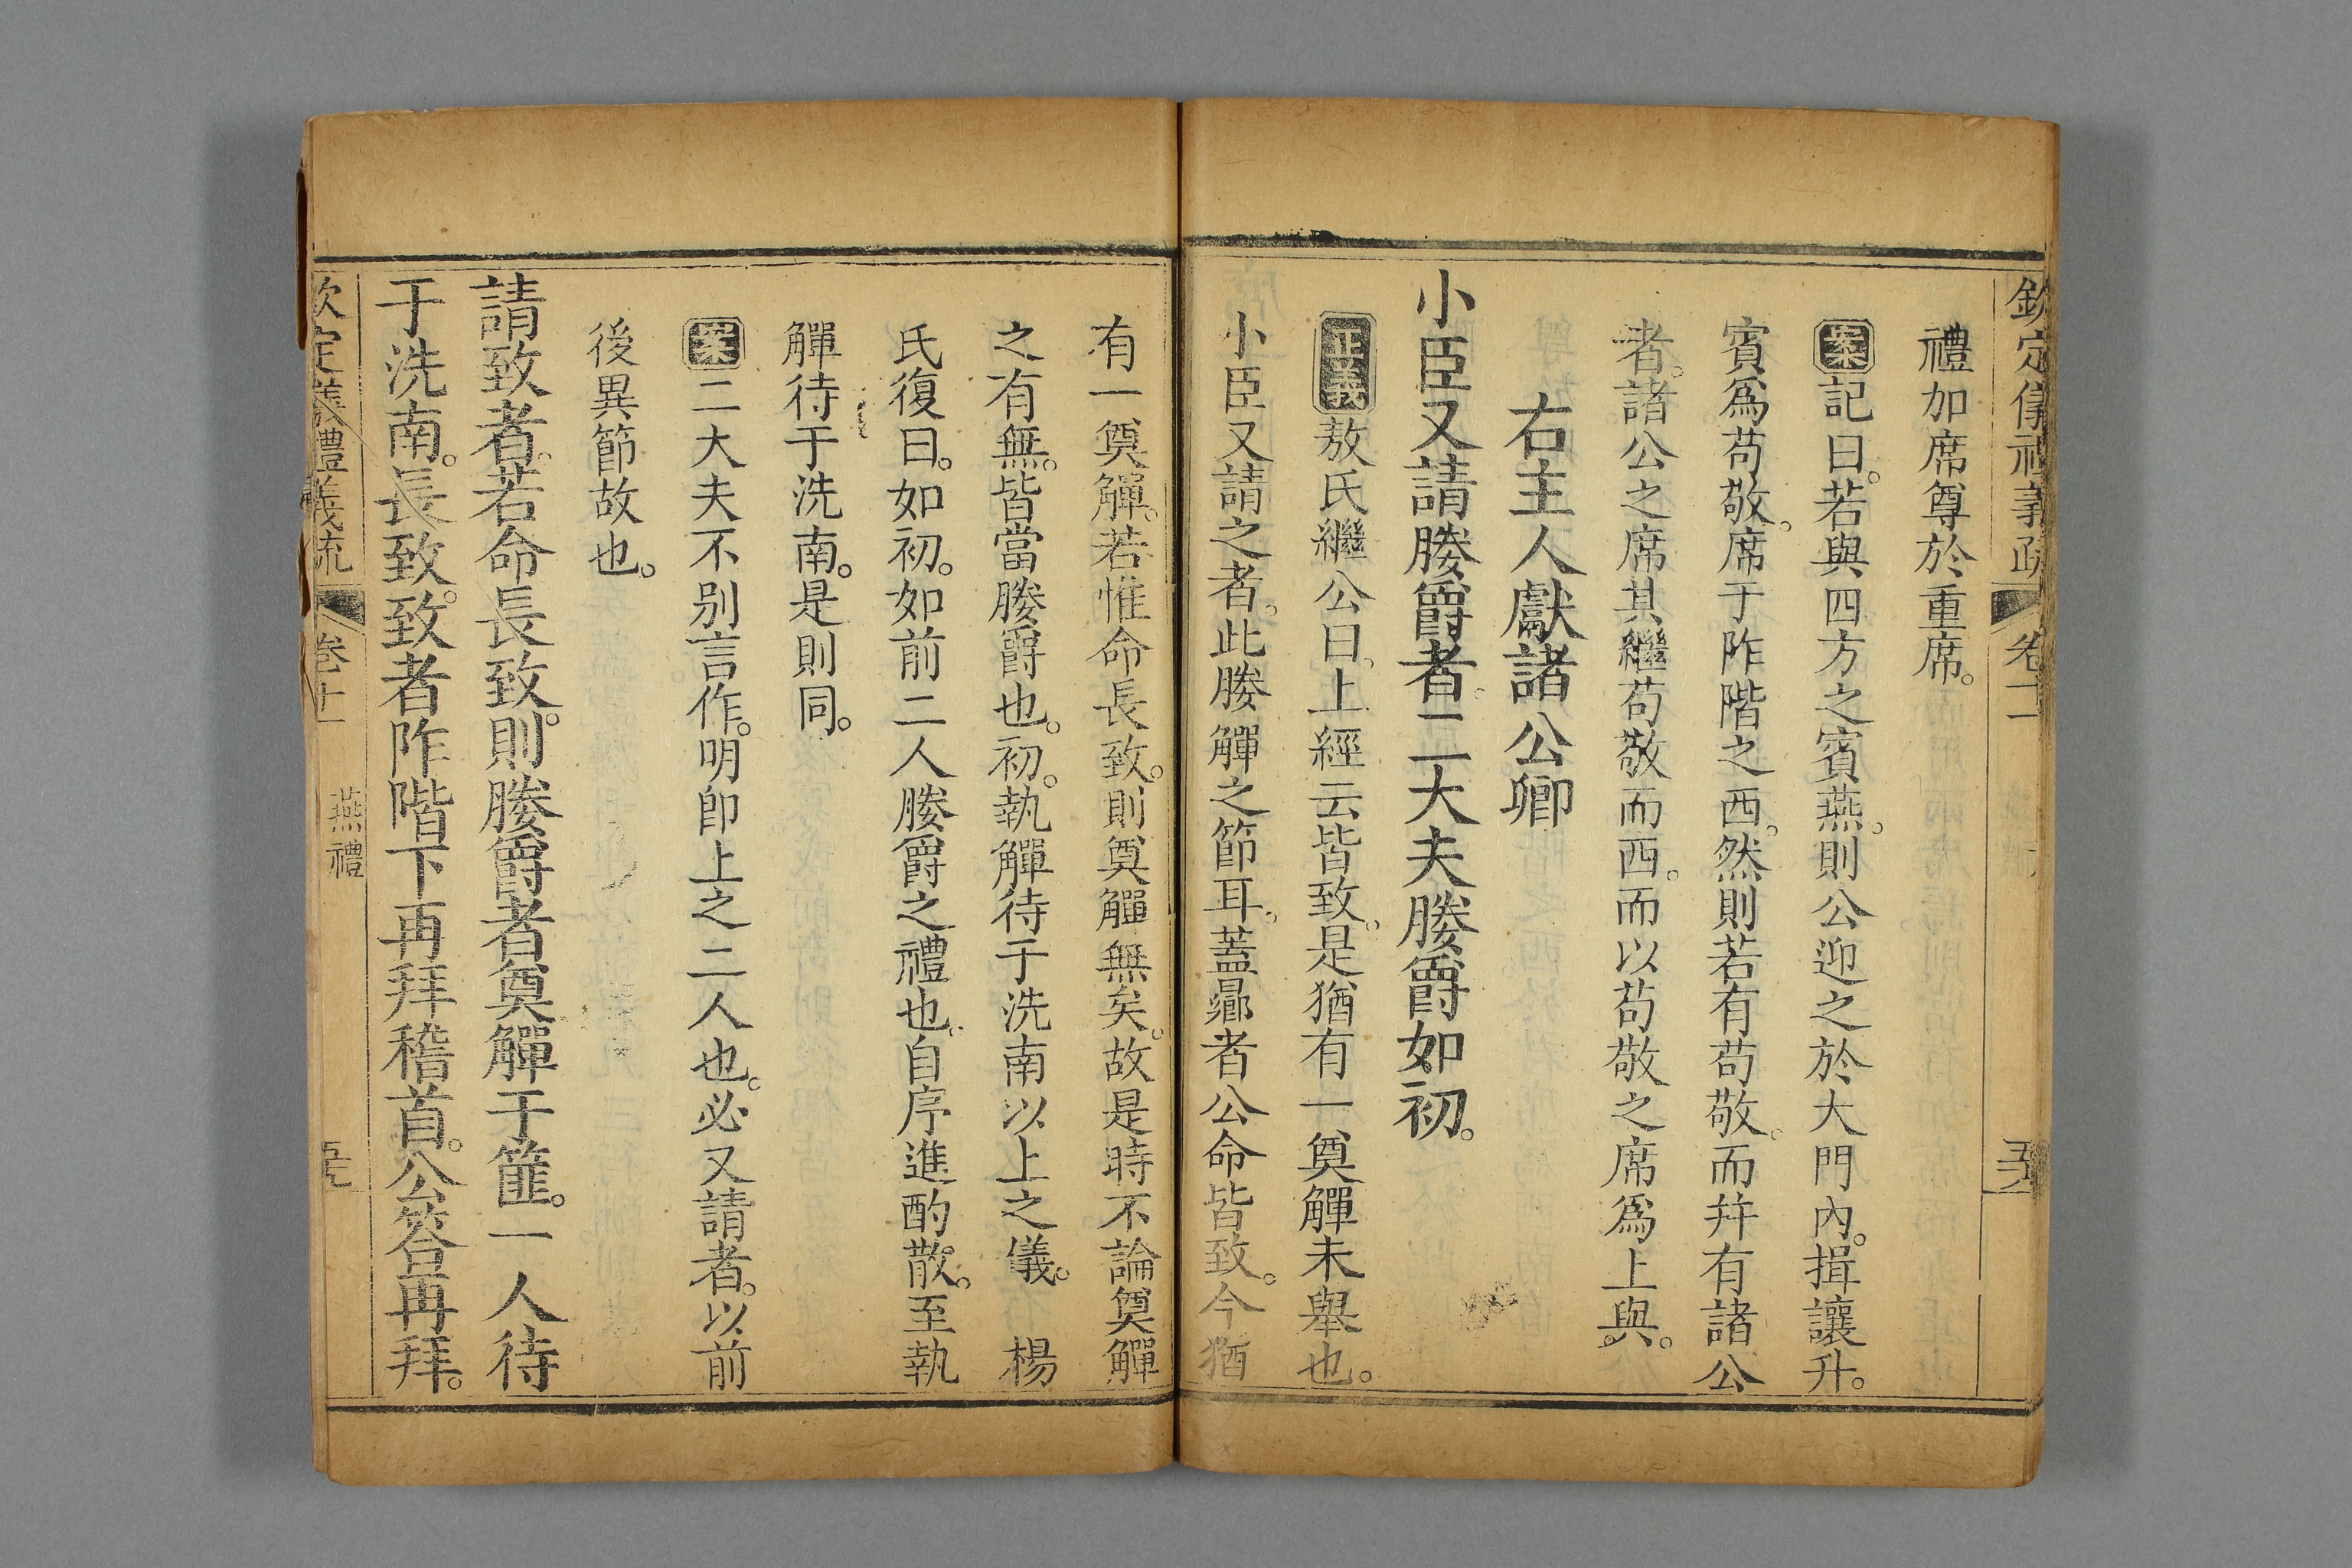 欽定儀禮義疏 卷十一
禮加席尊於重席。
案記曰。若與四方之賓燕。則公迎之於大門內。揖讓升。
賓爲苟敬。席于阼階之西。然則若有苟敬。而幷有諸公
者。諸公之席其繼苟敬而西。而以苟敬之席爲上與。
右主人獻諸公卿
小臣又請媵爵者。二大夫媵爵如初。
正義敖氏繼公曰。上經云皆致。是猶有一奠觶未舉也。
小臣又請之者。此媵觶之節耳。蓋曏者公命皆致。今猶
有一奠觶。若惟命長致。則奠觶無矣。故是時不論奠觶
之有無。皆當媵爵也。初。執觶待于洗南以上之儀。 楊
氏復曰。如初。如前二人媵爵之禮也。自序進酌散。至執
觶待于洗南。是則同。
案二大夫不別言作。明卽上之二人也。必又請者。以前
後異節故也。
請致者。若命長致。則媵爵者奠觶于篚。一人待
于洗南。長致。致者阼階下再拜稽首。公答再拜。
欽定儀禮義疏 卷十一 燕禮